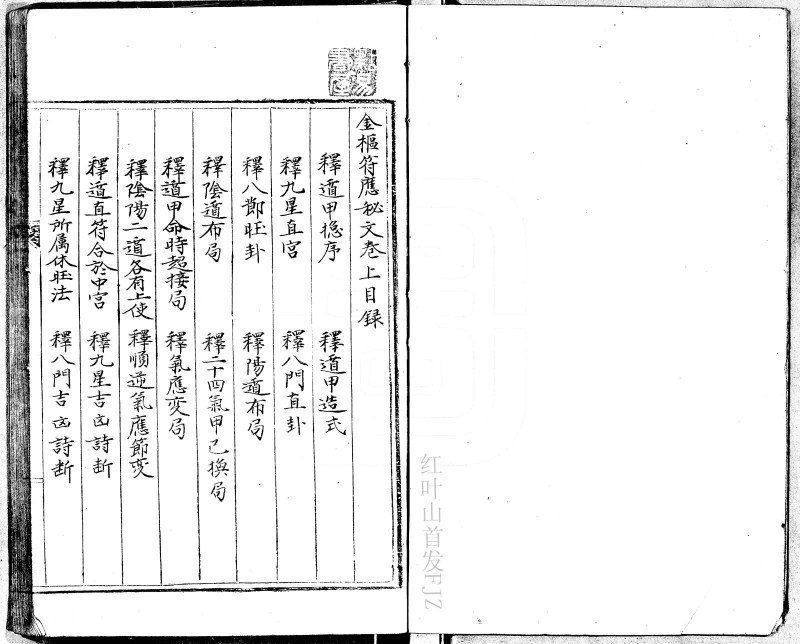 金樞符應秘文卷上目録
釋遁甲穏序　釋遁甲造式
釋九星直宮　釋八門直卦
釋八節旺卦　釋陽遁布局
釋陰遁布局　釋二十四氣甲己換局
釋遁甲命時超接局　釋氣應变局
釋陰陽二遁各有上使　釋順逆氣應節变
釋遁直符合於中宮　釋九星吉凶詩断
釋九星所属休旺法　釋八門吉凶詩断
红叶山首发FJZ